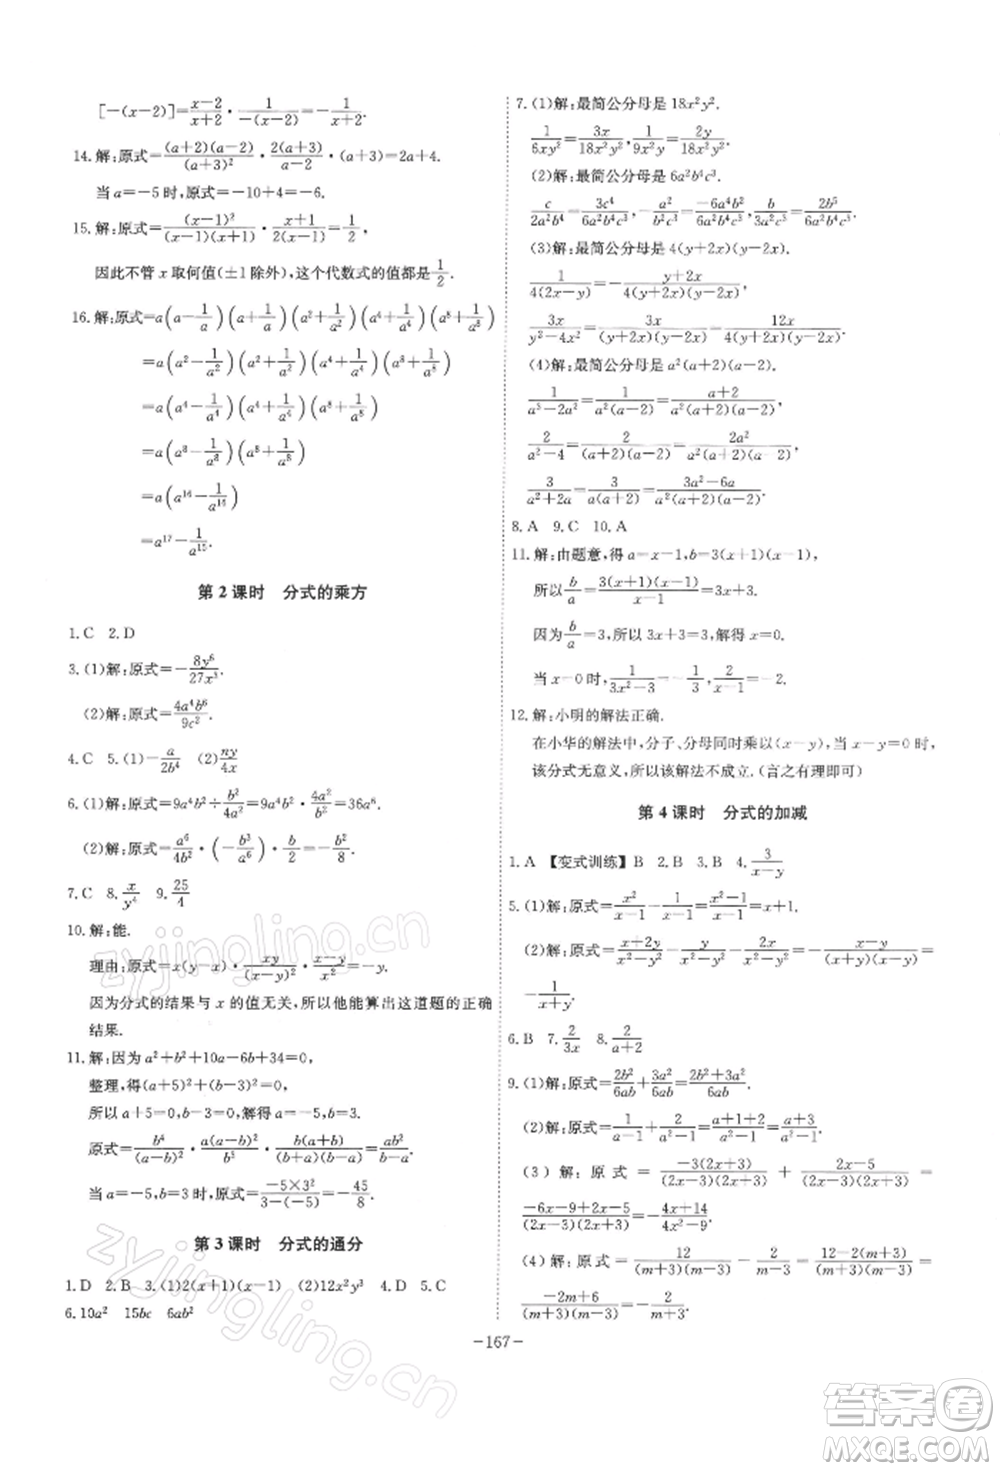 [-(x-2)]=\frac{x-2}{x+2}·\frac{1}{-(x-2)}=-\frac{1}{x+2}.
14.解:原式=\frac{(a+2)(a-2)}{(a+3)^2}·\frac{2(a+3)}{a-2}·(a+3)=2a+4.
当a=-5时,原式=-10+4=-6.
15.解:原式=\frac{(x-1)^2}{(x-1)(x+1)}·\frac{x+1}{2(x-1)}=\frac{1}{2}.
因此不管x取何值(±1除外),这个代数式的值都是\frac{1}{2}.
16.解:原式=a(a-\frac{1}{a})(a+\frac{1}{a})(a^2+\frac{1}{a^2})(a^4+\frac{1}{a^4})(a^8+\frac{1}{a^8})
=a(a^2-\frac{1}{a^2})(a^2+\frac{1}{a^2})(a^4+\frac{1}{a^4})(a^8+\frac{1}{a^8})
=a(a^4-\frac{1}{a^4})(a^4+\frac{1}{a^4})(a^8+\frac{1}{a^8})
=a(a^8-\frac{1}{a^8})(a^8+\frac{1}{a^8})
=a(a^{16}-\frac{1}{a^{16}})
=a^{17}-\frac{1}{a^{15}}.
第2课时 分式的乘方
1.C 2.D
3.(1)解:原式=-\frac{8y^6}{27x^3}.
(2)解:原式=\frac{4a^4b^6}{9c^2}.
4.C 5.(1)-\frac{a}{2b^4} (2)\frac{ny}{4x}
6.(1)解:原式=9a^4b^2÷\frac{b^2}{4a^2}=9a^4b^2·\frac{4a^2}{b^2}=36a^6.
(2)解:原式=\frac{a^6}{4b^2}·(-\frac{b^3}{a^6})·\frac{b}{2}=-\frac{b^2}{8}.
7.C 8.\frac{x}{y^4} 9.\frac{25}{4}
10.解:能.
理由:原式=x(y-x)·\frac{xy}{(x-y)^2}·\frac{x-y}{x^2}=-y.
因为分式的结果与x的值无关,所以他能算出这道题的正确
结果.
11.解:因为a^2+b^2+10a-6b+34=0,
整理,得(a+5)^2+(b-3)^2=0,
所以a+5=0,b-3=0,解得a=-5,b=3.
原式=\frac{b^4}{(a-b)^2}·\frac{a(a-b)^2}{b^2}·\frac{(a+b)}{(b+a)(b-a)}=\frac{ab^2}{b-a}.
当a=-5,b=3时,原式=\frac{-5×3^2}{3-(-5)}=-\frac{45}{8}.
第3课时 分式的通分
1.D 2.B 3.(1)2(x+1)(x-1) (2)12x^2y^3 4.D 5.C
6.10a^2 15bc 6ab^2
7.(1)解:最简公分母是18x^2y^2.
\frac{1}{6xy^2}=\frac{3x}{18x^2y^2},\frac{1}{9x^2y}=\frac{2y}{18x^2y^2}.
(2)解:最简公分母是6a^2b^4c^3.
\frac{c}{2a^2b^4}=\frac{3c^4}{6a^2b^4c^3},-\frac{a^2}{b^2c^3}=\frac{-6a^4b^2}{6a^2b^4c^3},\frac{b}{3a^2c^3}=\frac{2b^5}{6a^2b^4c^3}.
(3)解:最简公分母是4(y+2x)(y-2x).
\frac{1}{4(2x-y)}=-\frac{y+2x}{4(y+2x)(y-2x)},
\frac{3x}{y^2-4x^2}=\frac{3x}{(y+2x)(y-2x)}=\frac{12x}{4(y+2x)(y-2x)}.
(4)解:最简公分母是a^2(a+2)(a-2).
\frac{1}{a^3-2a^2}=\frac{1}{a^2(a-2)}=\frac{a+2}{a^2(a+2)(a-2)},
\frac{2}{a^2-4}=\frac{2}{(a+2)(a-2)}=\frac{2a^2}{a^2(a+2)(a-2)},
\frac{3}{a^2+2a}=\frac{3}{a(a+2)}=\frac{3a^2-6a}{a^2(a+2)(a-2)}.
8.A 9.C 10.A
11.解:由题意,得a=x-1,b=3(x+1)(x-1),
所以\frac{b}{a}=\frac{3(x+1)(x-1)}{x-1}=3x+3.
因为\frac{b}{a}=3,所以3x+3=3,解得x=0.
当x=0时,\frac{1}{3x^2-3}=-\frac{1}{3},\frac{2}{x-1}=-2.
12.解:小明的解法正确.
在小华的解法中,分子、分母同时乘以(x-y),当x-y=0时,
该分式无意义,所以该解法不成立.(言之有理即可)
第4课时 分式的加减
1.A 【变式训练】B 2.B 3.B 4.\frac{3}{x-y}
5.(1)解:原式=\frac{x^2}{x-1}-\frac{1}{x-1}=\frac{x^2-1}{x-1}=x+1.
(2)解:原式=\frac{x+2y}{x^2-y^2}-\frac{y}{x^2-y^2}-\frac{2x}{x^2-y^2}=-\frac{x-y}{(x+y)(x-y)}=
-\frac{1}{x+y}.
6.B 7.\frac{2}{3x} 8.\frac{2}{a+2}
9.(1)解:原式=\frac{2b^2}{6ab}+\frac{3a^2}{6ab}=\frac{2b^2+3a^2}{6ab}.
(2)解:原式=\frac{1}{a-1}+\frac{1}{a^2-1}=\frac{a+1+1}{a^2-1}=\frac{a+2}{a^2-1}.
(3)解:原式=\frac{-3(2x+3)}{(2x-3)(2x+3)}+\frac{2x-5}{(2x-3)(2x+3)}=
\frac{-6x-9+2x-5}{(2x+3)(2x-3)}=-\frac{4x+14}{4x^2-9}.
(4)解:原式=\frac{12}{(m+3)(m-3)}-\frac{2(m+3)}{(m+3)(m-3)}=\frac{12-2m-6}{(m+3)(m-3)}=
\frac{-2m+6}{(m+3)(m-3)}=-\frac{2}{m+3}.
-167-
zyjingling.cn
zyjingling.cn
答案圈
MXQE.COM